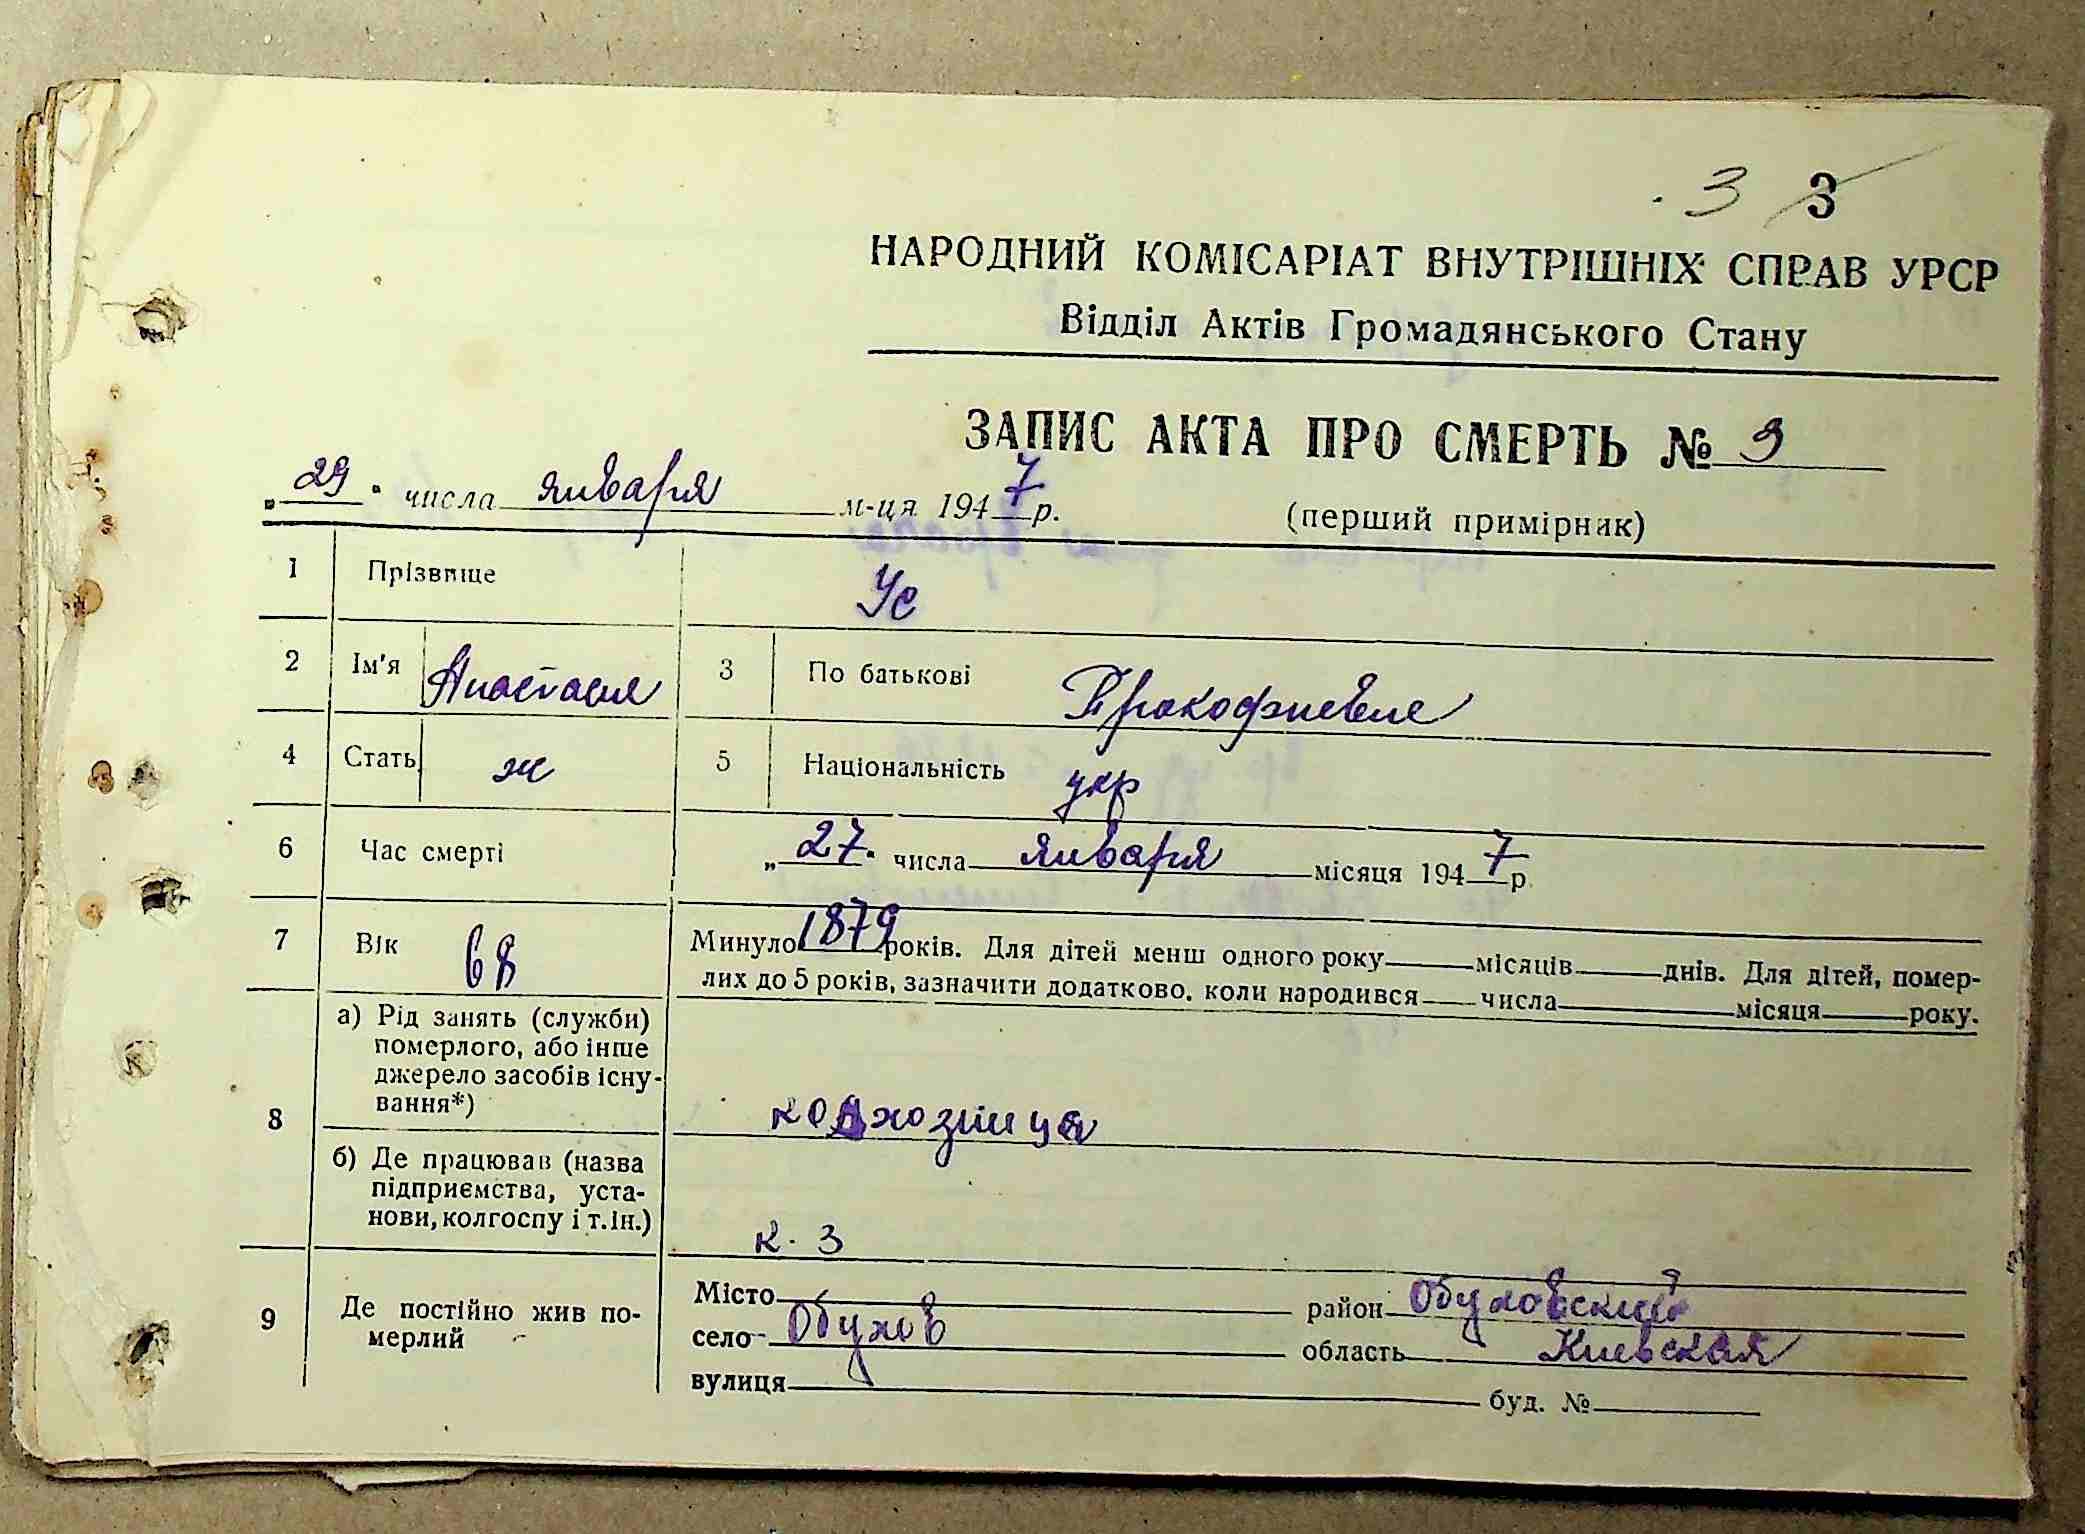 3 3
НАРОДНИЙ КОМІСАРІАТ ВНУТРІШНІХ СПРАВ УРСР
Відділ Актів Громадянського Стану
ЗАПИС АКТА ПРО СМЕРТЬ № 9
„29" числа января м-ця 1947 р. (перший примірник)
1 Прізвище Ус
2 Ім'я Анастасия 3 По батькові Прокофиевне
4 Стать ж 5 Національність укр
6 Час смерті „27" числа января місяця 1947 р.
7 Вік 68 Минуло 1879 років. Для дітей менш одного року місяців днів. Для дітей, помер-
лих до 5 років, зазначити додатково, коли народився числа місяця року.
8 а) Рід занять (служби)
померлого, або інше
джерело засобів існу-
вання*) колхозница
б) Де працював (назва
підприємства, уста-
нови, колгоспу і т. ін.) к. з
9 Де постійно жив по-
мерлий
Місто район Обуховский
село Обухов область Киевская
вулиця буд. №